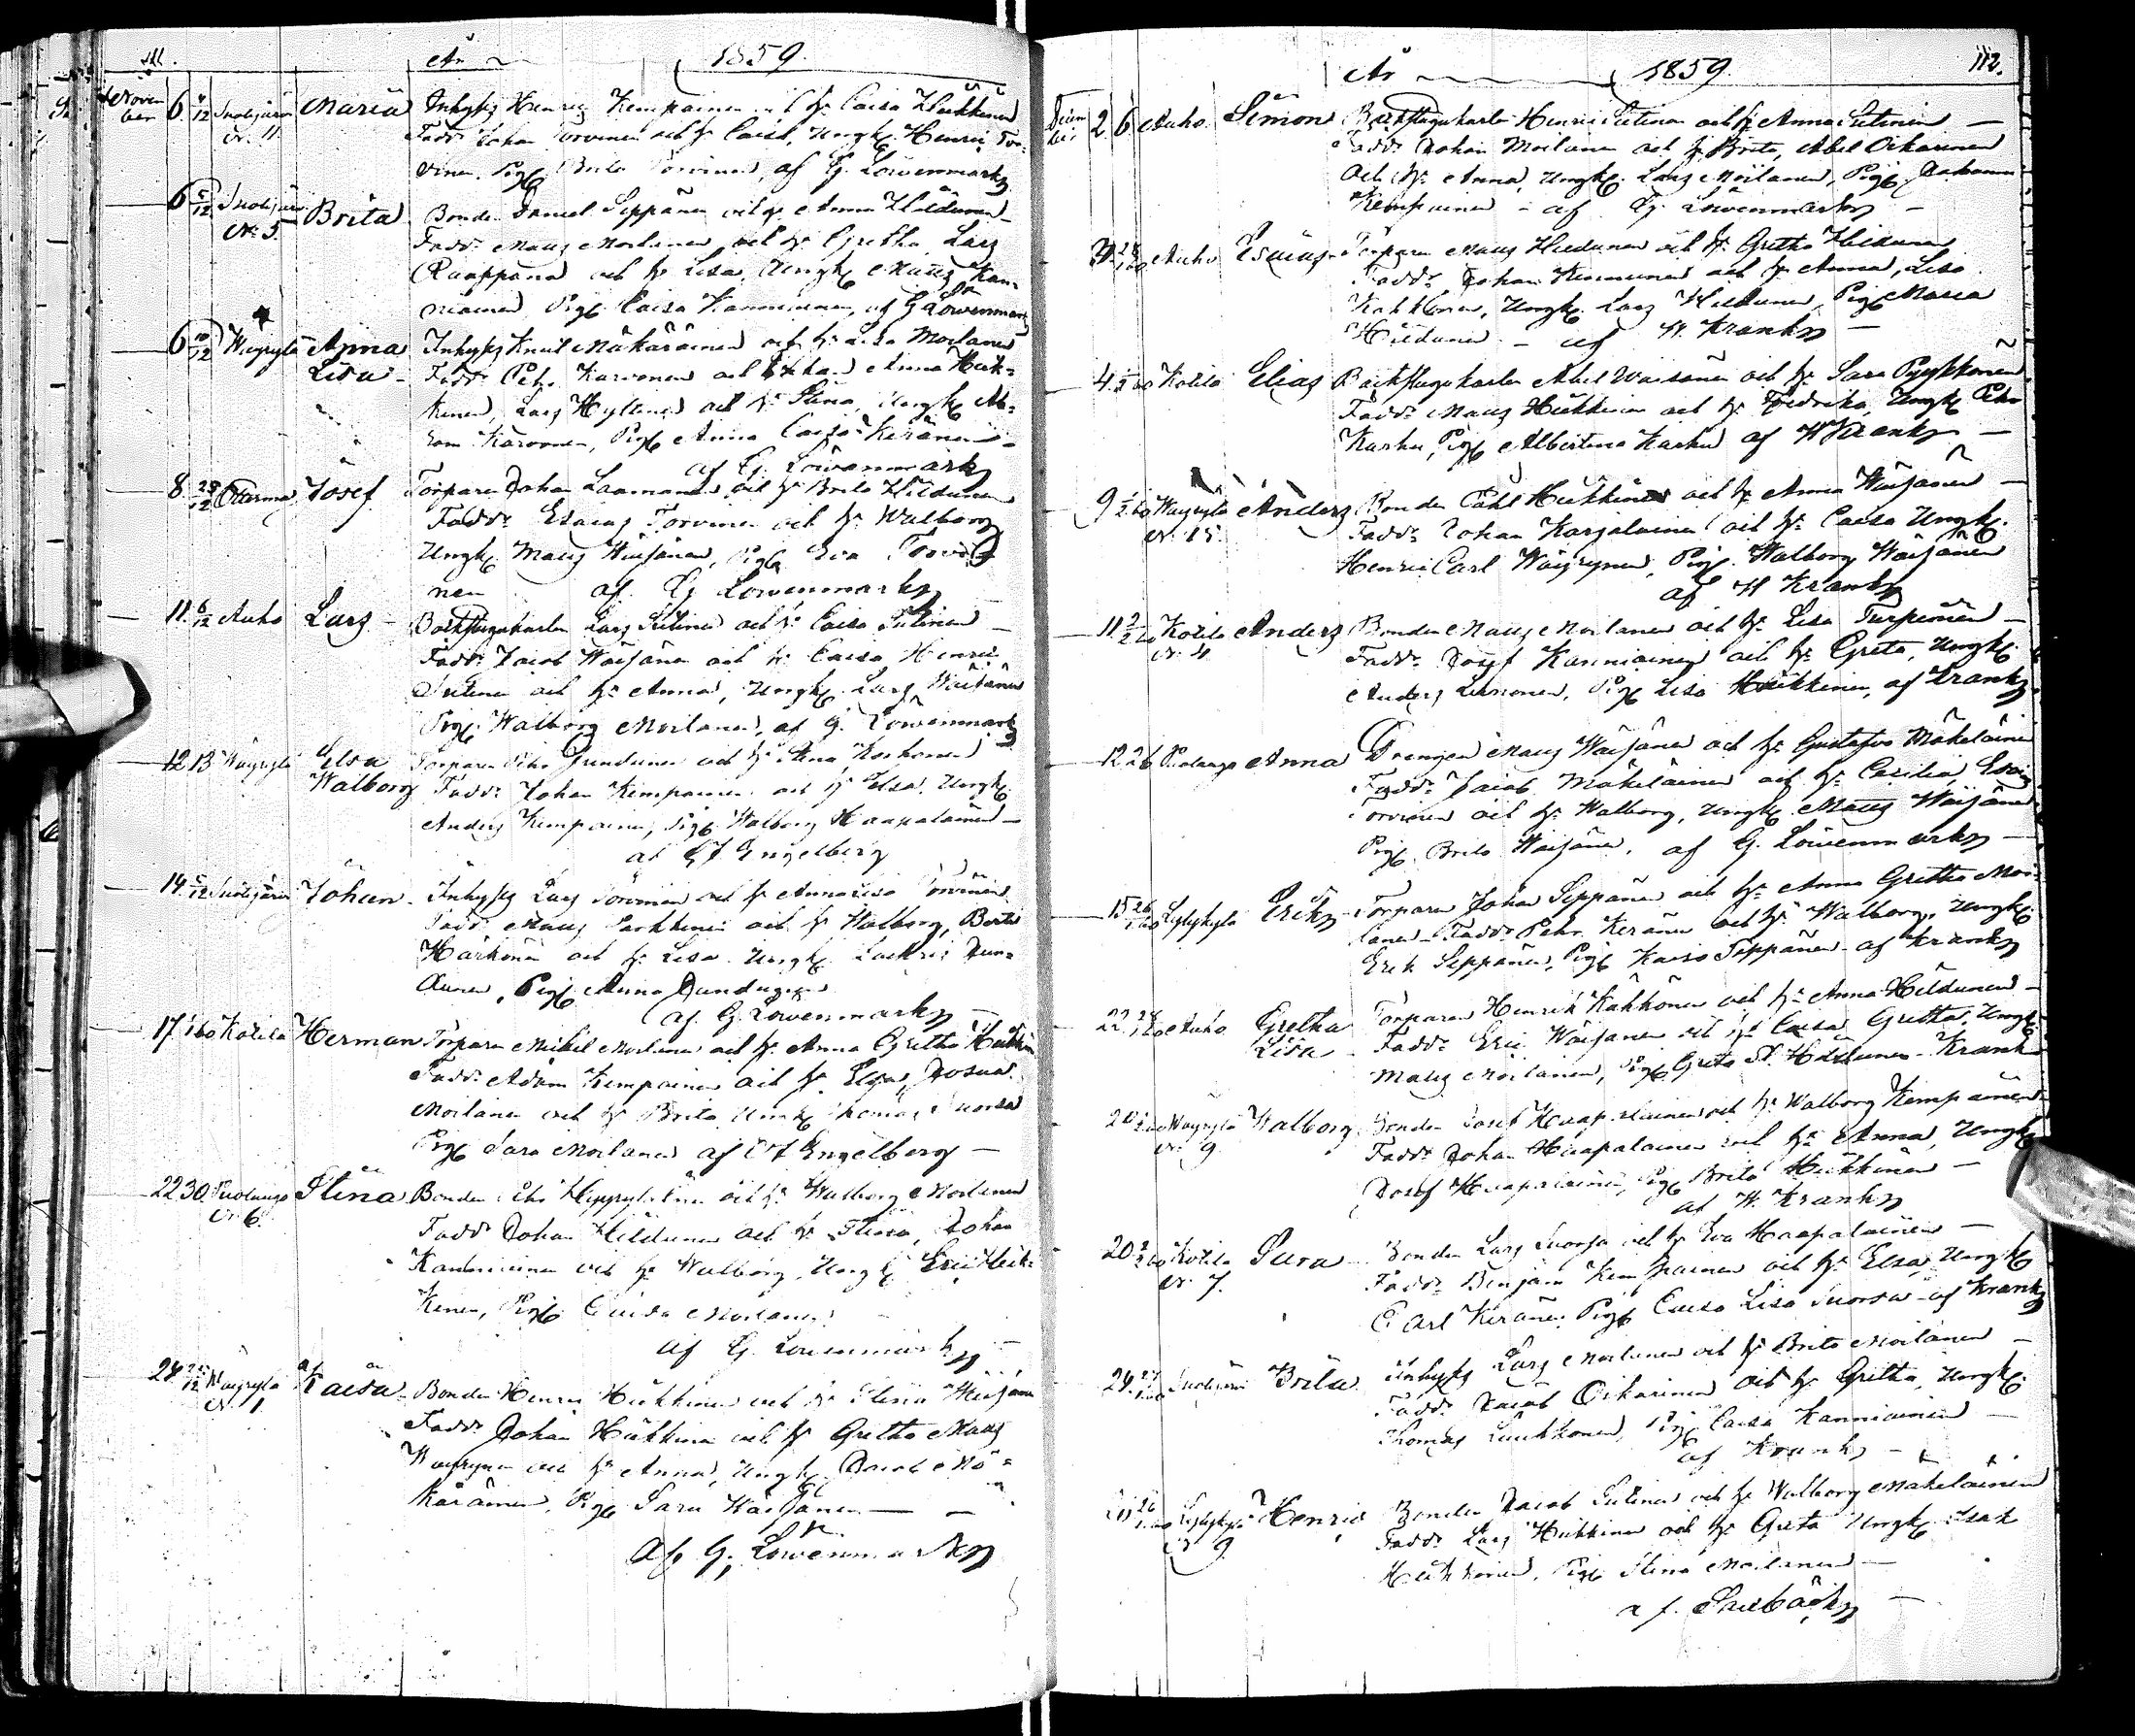 111.
År 1859.
November 6 4/12 Suolijärvi Maria Inhysg Henric Kempainen och h: Caisa Heikkinen
N. 11. Fadd: Johan Torvinen och h: Caisa, Ungk: Henric Tor=
vinen, Pig: Brita Torvinen, af G. Löwenmark
6 5/12 Suolijärvi Brita Bonden Daniel Seppänen och h: Anna Hildunen
N: 5. Fadd: Maus Moilanen och h: Gretha, Lars
Raappana och h: Lisa, Ungk: Maus Kan=
niainen Pig: Caisa Kanniainen, af G Löwenmark
6 10/12 Wäyrylä Anna Inhysg Knut Mäkäräinen och h: Lisa Moilanen
Lisa Fadd: Pehr Karvonen och Anna Heik=
kinen, Lars Hyttinen och h: Stina, Ungk: Ab=
ram Karvonen, Pig: Anna Caisa Keränen
af G. Löwenmark
8 28/12 Josef Torparen Johan Laamanen och h: Brita Hildunen
Fadd: Esaias Torvinen och h: Walborg
Ungk: Maus Wäisänen, Pig: Eva Torvi=
nen af G Löwenmark
11 6/12 Auho Lars Backstugukarlen Lars Sutinen och h: Caisa Sutinen
Fadd: Jacob Wäisänen och h: Caisa, Henric
Sutinen och h: Anna, Ungk: Lars Wäisänen
Pig: Walborg Moilanen, af G. Löwenmark
12 13 Wäyrylä Elsa Torparen Pehr och h: Anna Korhonen
Walborg Fadd: Johan Kempainen och h: Elsa, Ungk:
Anders Kempainen, Pig: Walborg Haapalainen
af Engelberg
14 5/12 Suolijärvi Johan Inhysg Lars Torvinen och h: Anna Lisa Torvinen
Fadd: Maus Parkkinen och h: Walborg, Bertil
Härkönen och h: Lisa Ungk:
Pig: Anna
af G. Löwenmark
17 Kotila Herman Torparen Michel Moilanen och h: Anna Gretha Heikkin
Fadd: Adam Kempainen och h: Elsa, Josua
Moilanen och h: Brita, Ungk: Thomas Suorsa
Pig: Sara Moilanen af Engelberg
22 30 Puolango Stina Bonden Pehr och h: Walborg Moilanen
N. 6. Fadd: Johan Hildunen och h: Stina, Johan
Kanniainen och h: Walborg, Ungk: Eric Heik=
kinen, Pig: Caisa Moilanen
af G. Löwenmark
24 25/12 Wäyrylä Kaisa Bonden Henric Heikkinen och h: Stina Wäisänen
N. 1 Fadd: Johan Heikkinen och h: Gretha Maus
Wäyrynen och h: Anna, Ungk: Jacob Mä=
käräinen, Pig: Sara Wäisänen
Af G. Löwenmark
112.
År 1859.
December 2 6 Auho Simon Backstugukarlen Henric Sutinen och h: Anna Sutinen
Fadd: Johan Moilanen och h: Brita, Abel Oikarinen
och h: Anna, Ungk: Lars Moilanen, Pig: Johanna
Kempainen – af G. Löwenmark
Auho Esaias Torparen Maus Hildunen och h: Gretha Hildunen
Fadd: Johan Kinnunen och h: Anna, Lisa
Kähkönen, Ungk: Lars Hildunen, Pig: Maria
Hildunen – af H. Krank
4 Kotila Elias Backstugukarlen Abel Wäisänen och h: Sara Pyykkönen
Fadd: Maus Heikkinen och h: Fredrika, Ungk: Pehr
Karhu, Pig: Albertina Karhu af H Krank
9 Wäyrylä Anders Bonden Carl Heikkinen och h: Anna Wäisänen
N. 15. Fadd: Johan Karjalainen och h: Caisa Ungk:
Henric Carl Wäyrynen, Pig: Walborg Wäisänen
af H Krank
11 Kotila Anders Bonden Maus Moilanen och h: Lisa Turpeinen
N. 4 Fadd: Josef Kanniainen och h: Greta, Ungk:
Anders Leinonen, Pig: Lisa Heikkinen, af Krank
12 26 Puolango Anna Drengen Maus Wäisänen och h: Gustafva Mäkeläinen
Fadd: Jacob Mäkeläinen och h: Cecilia, Esaias
Torvinen och h: Walborg, Ungk: Maus Wäisänen
Pig: Brita Wäisänen, af G. Löwenmark
15 Lylykylä Erik Torparen Johan Seppänen och h: Anna Gretha Moi=
lanen – Fadd: Pehr Keränen och h: Walborg, Ungk:
Erik Seppänen, Pig: Kaisa Seppänen af Krank
22 Auho Gretha Torparen Henrik Kähkönen och h: Anna Hildunen
Lisa Fadd: Eric Wäisänen och h: Caisa Gretha, Ungk:
Maus Moilanen, Pig: Greta St. Hildunen – Krank
20 Wäyrylä Walborg Bonden Josef Haapalainen och h: Walborg Kempainen
N. 9. Fadd: Johan Haapalainen och h: Anna, Ungk:
Josef Haapalainen, Pig: Brita Heikkinen
af H. Krank
20 Kotila Sara Bonden Lars Suorsa och h: Eva Haapalainen
N. 7. Fadd: Benjam Kempainen och h: Elsa, Ungk:
Carl Keränen, Pig: Caisa Lisa Suorsa – af Krank
24 Suolijärvi Brita Inhysg Lars Moilanen och h: Brita Moilanen
Fadd: Jacob Oikarinen och h: Gretha, Ungk:
Thomas Luukkonen, Pig: Caisa Kanniainen
af Krank
Lylykylä Henric Bonden Jacob Sutinen och h: Walborg Mäkeläinen
N 9. Fadd: Lars Heikkinen och h: Greta Ungk: Isak
Heikkinen, Pig: Stina Moilanen
af